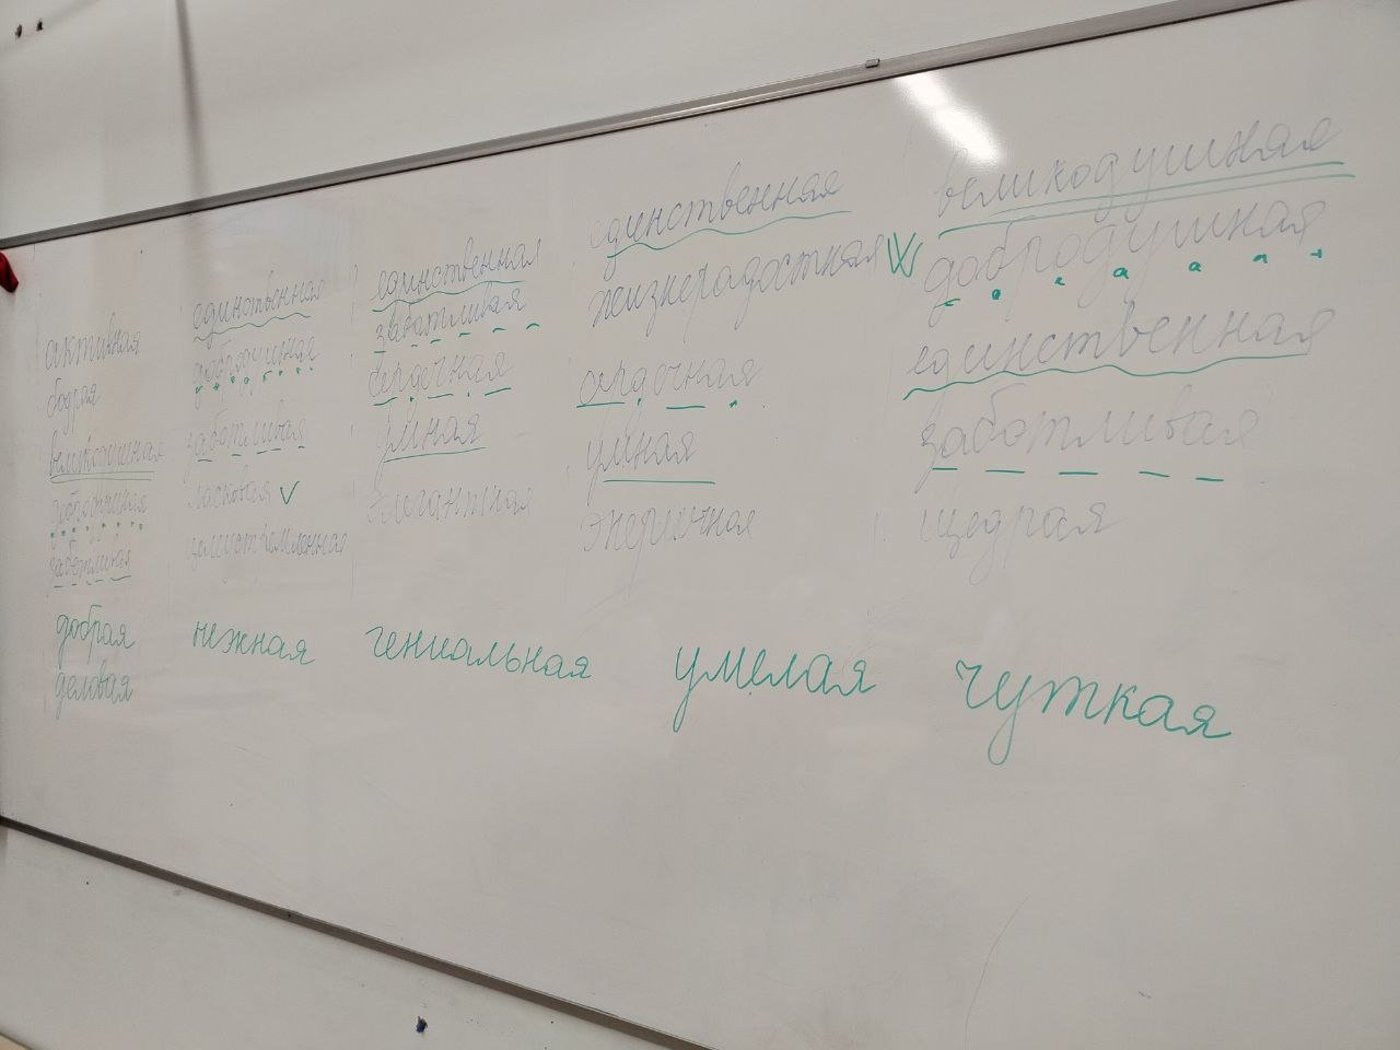 активная
бодрая
великодушная
добродушная
заботливая
добрая
деловая
единственная
добродушная
заботливая
ласковая V
целеустремленная
нежная
единственная
заботливая
сердечная
умная
элегантная
гениальная
единственная
жизнерадостная
сердечная
умная
энергичная
умелая
великодушная
добродушная
единственная
заботливая
щедрая
чуткая